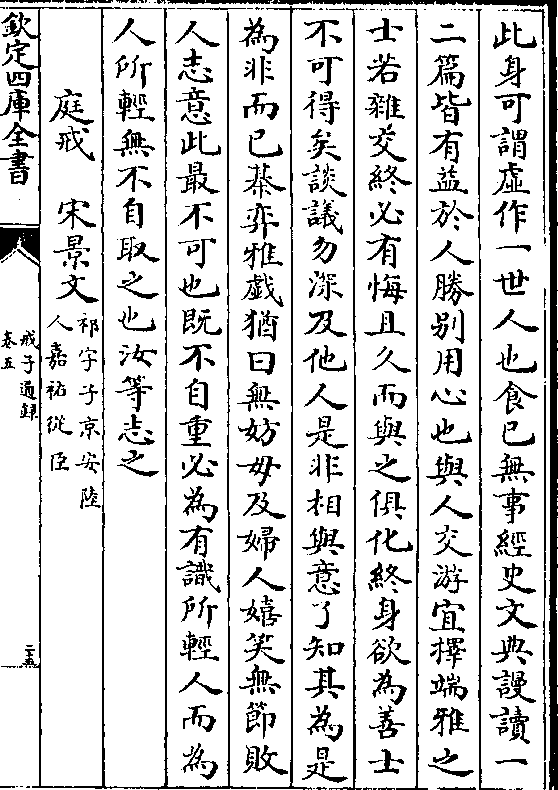 此身可謂虛作一世人也食已無事經史文典謾讀一
二篇皆有益於人勝别用心也與人交游宜擇端雅之
士若雜交終必有悔且久而與之俱化終身欲為善士
不可得矣談議勿深及他人是非相與意了知其為是
為非而已棊弈雅戲猶曰無妨毋及婦人嬉笑無節敗
人志意此最不可也既不自重必為有識所輕人而為
人所輕無不自取之也汝等志之
庭戒　宋景文
祁字子京安陸
人嘉祐從臣
欽定四庫全書
戒子通錄
卷五
二十五